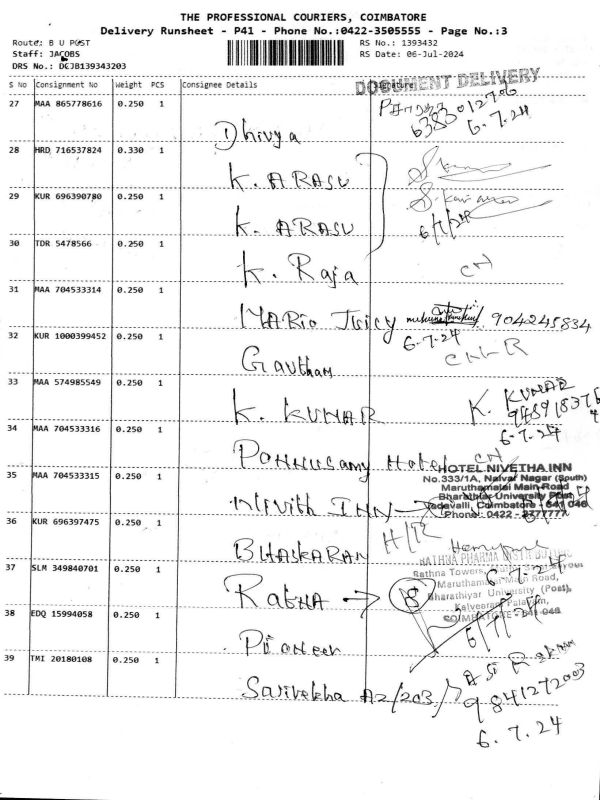 THE PROFESSIONAL COURIERS, COIMBATORE
Delivery Runsheet - P41 - Phone No.:0422-3505555 - Page No.:3
Route: B U POST
Staff: JACOBS
DRS No.: DCJB139343203
RS No.: 1393432
RS Date: 06-Jul-2024
S No Consignment No Weight PCS Consignee Details Signature
DOCUMENT DELIVERY
27 MAA 865778616 0.250 1
6383012706
6.7.24
Dhivya
28 HRD 716537824 0.330 1
K. ARASU
29 KUR 696390780 0.250 1
K. ARASU
6/7/24
30 TDR 5478566 0.250 1
K. Raja
31 MAA 704533314 0.250 1
MARIO Juicy 9042245834
6.7.24
32 KUR 1000399452 0.250 1
Gautham
33 MAA 574985549 0.250 1
K. KUMAR K. KUMAR
6.7.24
34 MAA 704533316 0.250 1
Ponnusamy Hotel
HOTEL NIVETHA INN
No.333/1A, Nalvar Nagar (South)
Maruthamalai Main Road
Bharathiar University Post
Vadavalli, Coimbatore - 641 046
Phone: 0422 - 2777777
35 MAA 704533315 0.250 1
Nivith INN
H/R
36 KUR 696397475 0.250 1
BHASKARAN
37 SLM 349840701 0.250 1
RATHNA PHARMA
6.7.24
Rathna Towers,
Maruthamalai Main Road,
Bharathiyar University (Post),
Kalveerampalayam,
COIMBATORE - 641 046
Rathna
6/7/24
38 EDQ 15994058 0.250 1
Pioneer
39 TMI 20180108 0.250 1
Sarivekha A2/203/
9841272003
6.7.24